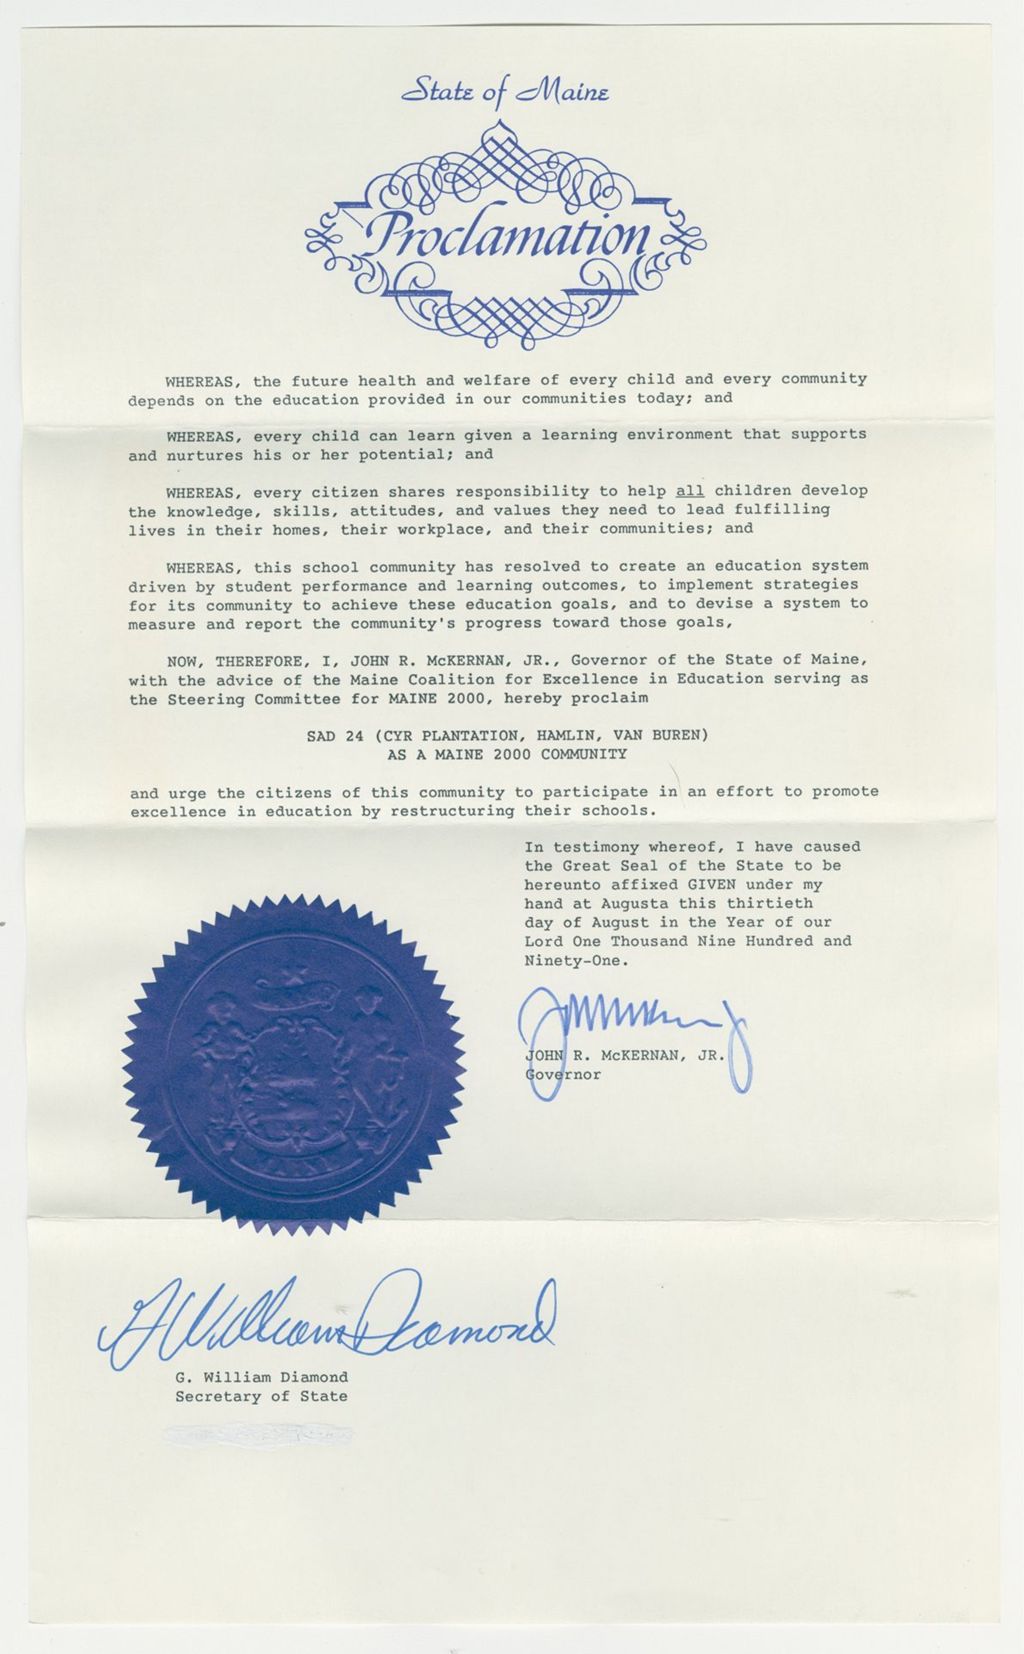 State of Maine
Proclamation
WHEREAS, the future health and welfare of every child and every community
depends on the education provided in our communities today; and
WHEREAS, every child can learn given a learning environment that supports
and nurtures his or her potential; and
WHEREAS, every citizen shares responsibility to help all children develop
the knowledge, skills, attitudes, and values they need to lead fulfilling
lives in their homes, their workplace, and their communities; and
WHEREAS, this school community has resolved to create an education system
driven by student performance and learning outcomes, to implement strategies
for its community to achieve these education goals, and to devise a system to
measure and report the community's progress toward those goals,
NOW, THEREFORE, I, JOHN R. McKERNAN, JR., Governor of the State of Maine,
with the advice of the Maine Coalition for Excellence in Education serving as
the Steering Committee for MAINE 2000, hereby proclaim
SAD 24 (CYR PLANTATION, HAMLIN, VAN BUREN)
AS A MAINE 2000 COMMUNITY
and urge the citizens of this community to participate in an effort to promote
excellence in education by restructuring their schools.
In testimony whereof, I have caused
the Great Seal of the State to be
hereunto affixed GIVEN under my
hand at Augusta this thirtieth
day of August in the Year of our
Lord One Thousand Nine Hundred and
Ninety-One.
JOHN R. McKERNAN, JR.
Governor
MAINE
G William Diamond
G. William Diamond
Secretary of State